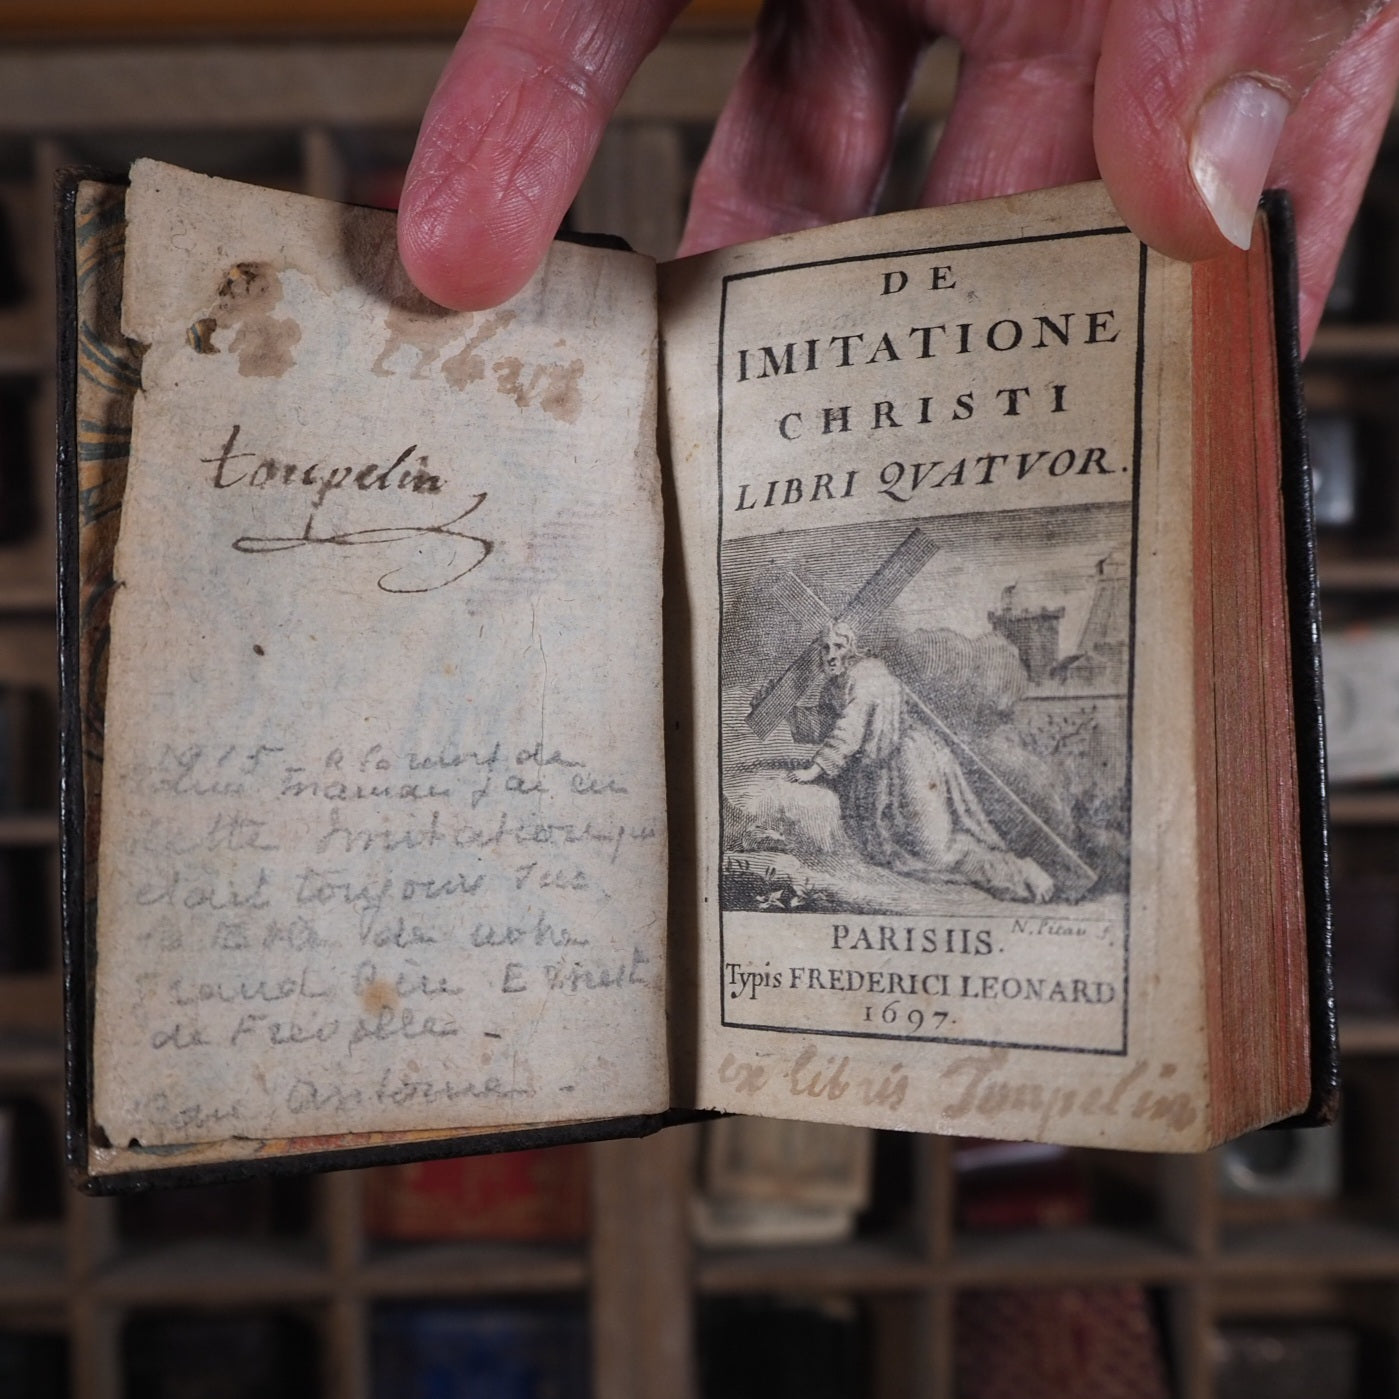 ex Libris
toupelin
1915 - A la mort de
Maman j'ai eu
cette Imitation qui
était toujours sur
de notre
Grand Père Ernest
de Frévolle -
Antoine -
DE
IMITATIONE
CHRISTI
LIBRI QVATVOR.
N. Pitau f.
PARISIIS.
Typis FREDERICI LEONARD
1697.
ex libris Toupelin